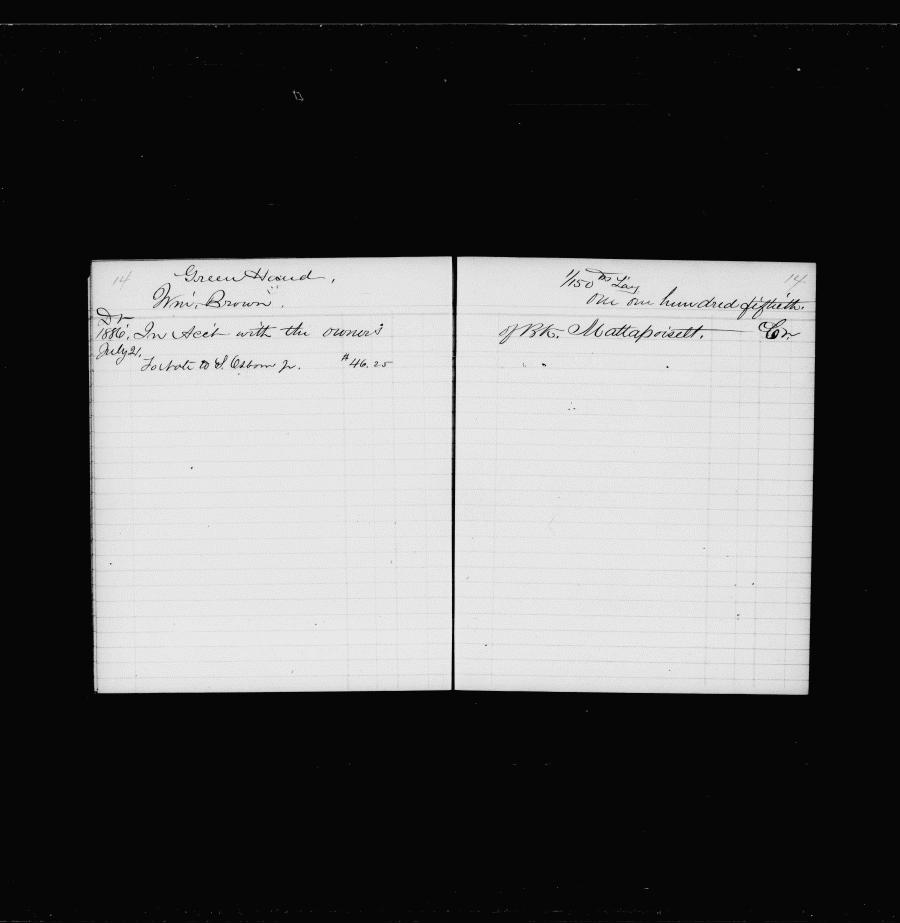 14
Green Hand,
Wm. Brown.
Dr
1886. In Acct with the owners
July 2,
To Note to S. Osborn Jr. $46.25
14
1/150 ths Lay
one one hundred fiftieth.
of Bk. Mattapoisett. Cr.